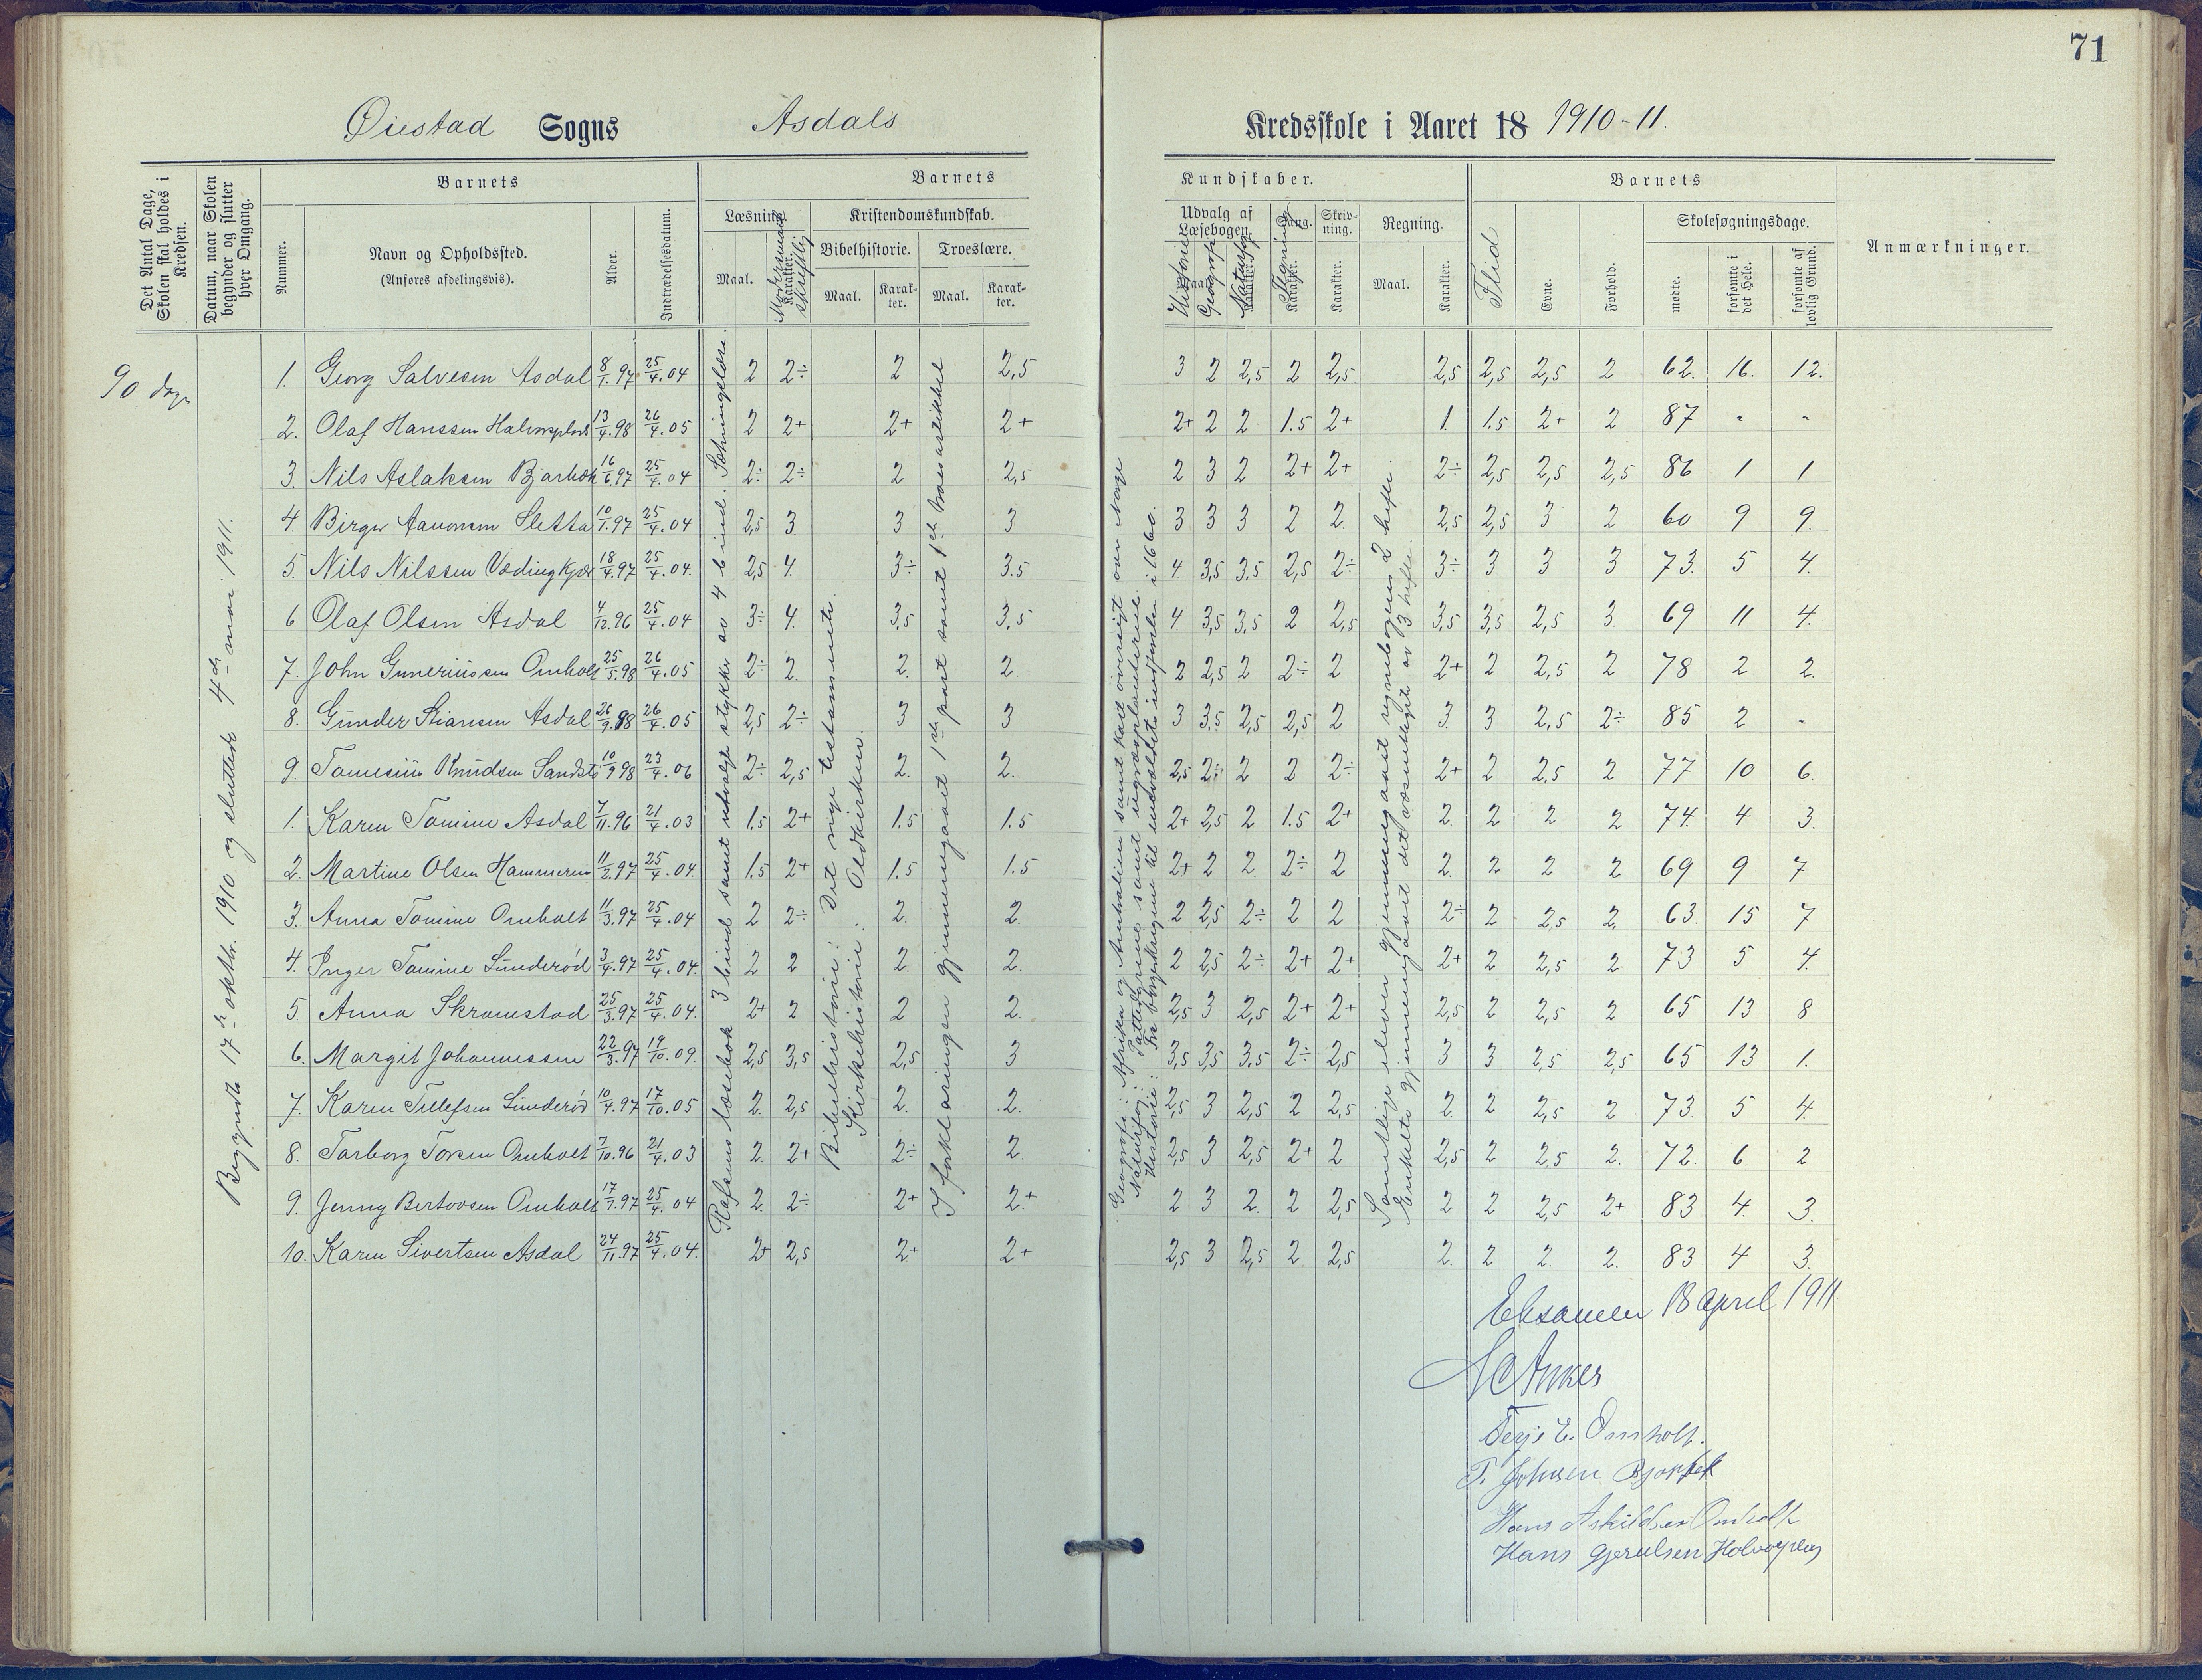 71
Øiestad Sogns Asdals Kredsskole i Aaret 18 1910-11.
Det Antal Dage, Skolen skal holdes i Kredsen.
Datum, naar Skolen begynder og slutter hver Omgang.
Nummer.
Barnets
Navn og Opholdssted.
(Anføres afdelingsvis).
Alder.
Indtrædelsesdatum.
Barnets Kundskaber.
Læsning.
Maal.
Karakter.
Modersmaal skriftlig
Kristendomskundskab.
Bibelhistorie.
Maal.
Karakter.
Troeslære.
Maal.
Karakter.
Udvalg af Læsebogen.
Historie
Geografi
Naturfag
Karakter.
Sang.
Tegning
Karakter.
Skrivning.
Karakter.
Regning.
Maal.
Karakter.
Barnets
Flid
Evne.
Forhold.
Skolesøgningsdage.
mødte.
forsømte i det Hele.
forsømte af lovlig Grund.
Anmærkninger.
90 dage
Begyndte 17de oktbr. 1910 og sluttede 4de mars 1911.
Rolfsens læsebok 3 bind samt utvalgte stykker av 4 bind. Setningslære.
Bibelhistorie: Det nye testamente.
Kirkehistorie: Oldkirken.
I forklaringen gjennemgaaet 1ste part samt 1ste troesartikkel
Geografi: Afrika og Australien samt kort oversigt over Norge
Naturfag: Pattedyrene samt
Historie: Fra til enevældets indførelse i 1660.
Samtlige elever gjennemgaaet regnebogens 2 hefte.
Enkelte gjennemgaaet det væsentligste av 3 hefte.
1. Georg Salvesen Asdal 8/1.97 25/4.04 2 2÷ 2 2,5 3 2 2,5 2 2,5 2,5 2,5 2,5 2 62. 16. 12.
2. Olaf Hanssen 13/4.98 26/4.05 2 2+ 2+ 2+ 2+ 2 2 1.5 2+ 1. 1.5 2+ 2 87 - -
3. Nils Aslaksen Bjørbæk 16/6.97 25/4.04 2÷ 2÷ 2 2,5 2 3 2 2+ 2+ 2÷ 2,5 2,5 2,5 86 1 1
4. Birger Aanonsen Sletta 10/1.97 25/4.04 2,5 3. 3 3 3 3 3 2 2. 2,5 2,5 3 2 60 9 9.
5. Nils Nilssen 18/4.97 25/4.04. 2,5 4. 3÷ 3.5 4 3,5 3,5 2,5 2÷ 3÷ 3 3 3 73. 5 4.
6 Olaf Olsen Asdal 4/12.96 25/4.04 3÷ 4. 3,5 3,5 4. 3,5 3,5 2 2,5 3,5 3,5 2,5 3. 69 11 4.
7. John Guneriussen Omholt 25/5.98 26/4.05 2÷ 2. 2. 2. 2 2,5 2 2÷ 2 2+ 2 2,5 2 78 2 2.
8. Gunder Stiansen Asdal 26/9.98 26/4.05 2,5 2÷ 3 3 3 3,5 2,5 2,5 2 3. 3 2,5 2÷ 85 2 -
9. Tomesius Knudsen 10/9.98 23/4.06 2÷ 2,5 2. 2. 2,5 2÷ 2 2 2÷ 2+ 2 2,5 2 77 10 6.
1. Karen Tomine Asdal 7/11.96 21/4.03 1,5 2+ 1.5 1.5 2+ 2,5 2 1.5 2+ 2. 2 2 2 74. 4 3.
2. Martine Olsen Hammeren 11/2.97 25/4.04. 1.5 2+ 1.5 1.5 2+ 2 2. 2÷ 2 2. 2 2 2 69 9 7
3. Anna Tomine Omholt 11/3.97 25/4.04 2 2÷ 2. 2. 2 2,5 2÷ 2 2 2÷ 2 2,5 2. 63. 15 7
4. Inger Tomine Lunderød 3/4.97 25/4.04. 2 2 2. 2. 2 2,5 2÷ 2+ 2+ 2+ 2 2,5 2 73 5 4.
5. Anna Skramstad 25/3.97 25/4.04. 2+ 2 2 2. 2,5 3 2,5 2+ 2+ 2,5 2 2,5 2 65 13 8
6. Margit Johannessen 22/3.97 19/10.09. 2,5 3,5 2,5 3 3,5 3,5 3.5 2÷ 2,5 3 3 2,5 2,5 65 13 1.
7. Karen Tellefsen Lunderød 10/4.97 17/10.05 2. 2,5 2. 2. 2,5 3 2,5 2 2,5 2. 2 2,5 2 73. 5 4.
8. Torborg Torsen Omholt 7/10.96 21/4.03 2. 2+ 2÷ 2. 2,5 3 2,5 2+ 2 2,5 2 2,5 2. 72. 6 2
9. Jenny Bertovsen Omholt 17/7.97 25/4.04 2. 2÷ 2+ 2+ 2 3 2. 2 2,5 2 2 2,5 2+ 83 4. 3.
10. Karen Sivertsen Asdal 24/11.97 25/4.04. 2+ 2,5 2+ 2+ 2,5 3 2,5 2 2,5 2. 2 2. 2. 83 4 3.
Eksamen 18 april 1911
Anker
Terje E. Omholt.
T. Johnsen Bjørbæk
Hans Askildsen Omholt
Hans Gjerulsen